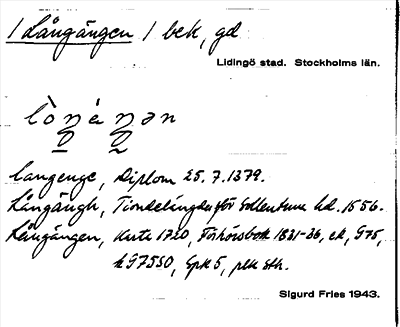 / Långängen / bek, gd
Lidingö stad. Stockholms län.
lòŋáŋən
langenge, Diplom 25.7.1379.
Långängh, Tiondelängder för Sollentuna hd. 1556.
Långängen, Karta 1720, Förhörsbok 1831-36, ek, G75,
hG7550, Gpk 5, plk Sth.
Sigurd Fries 1943.